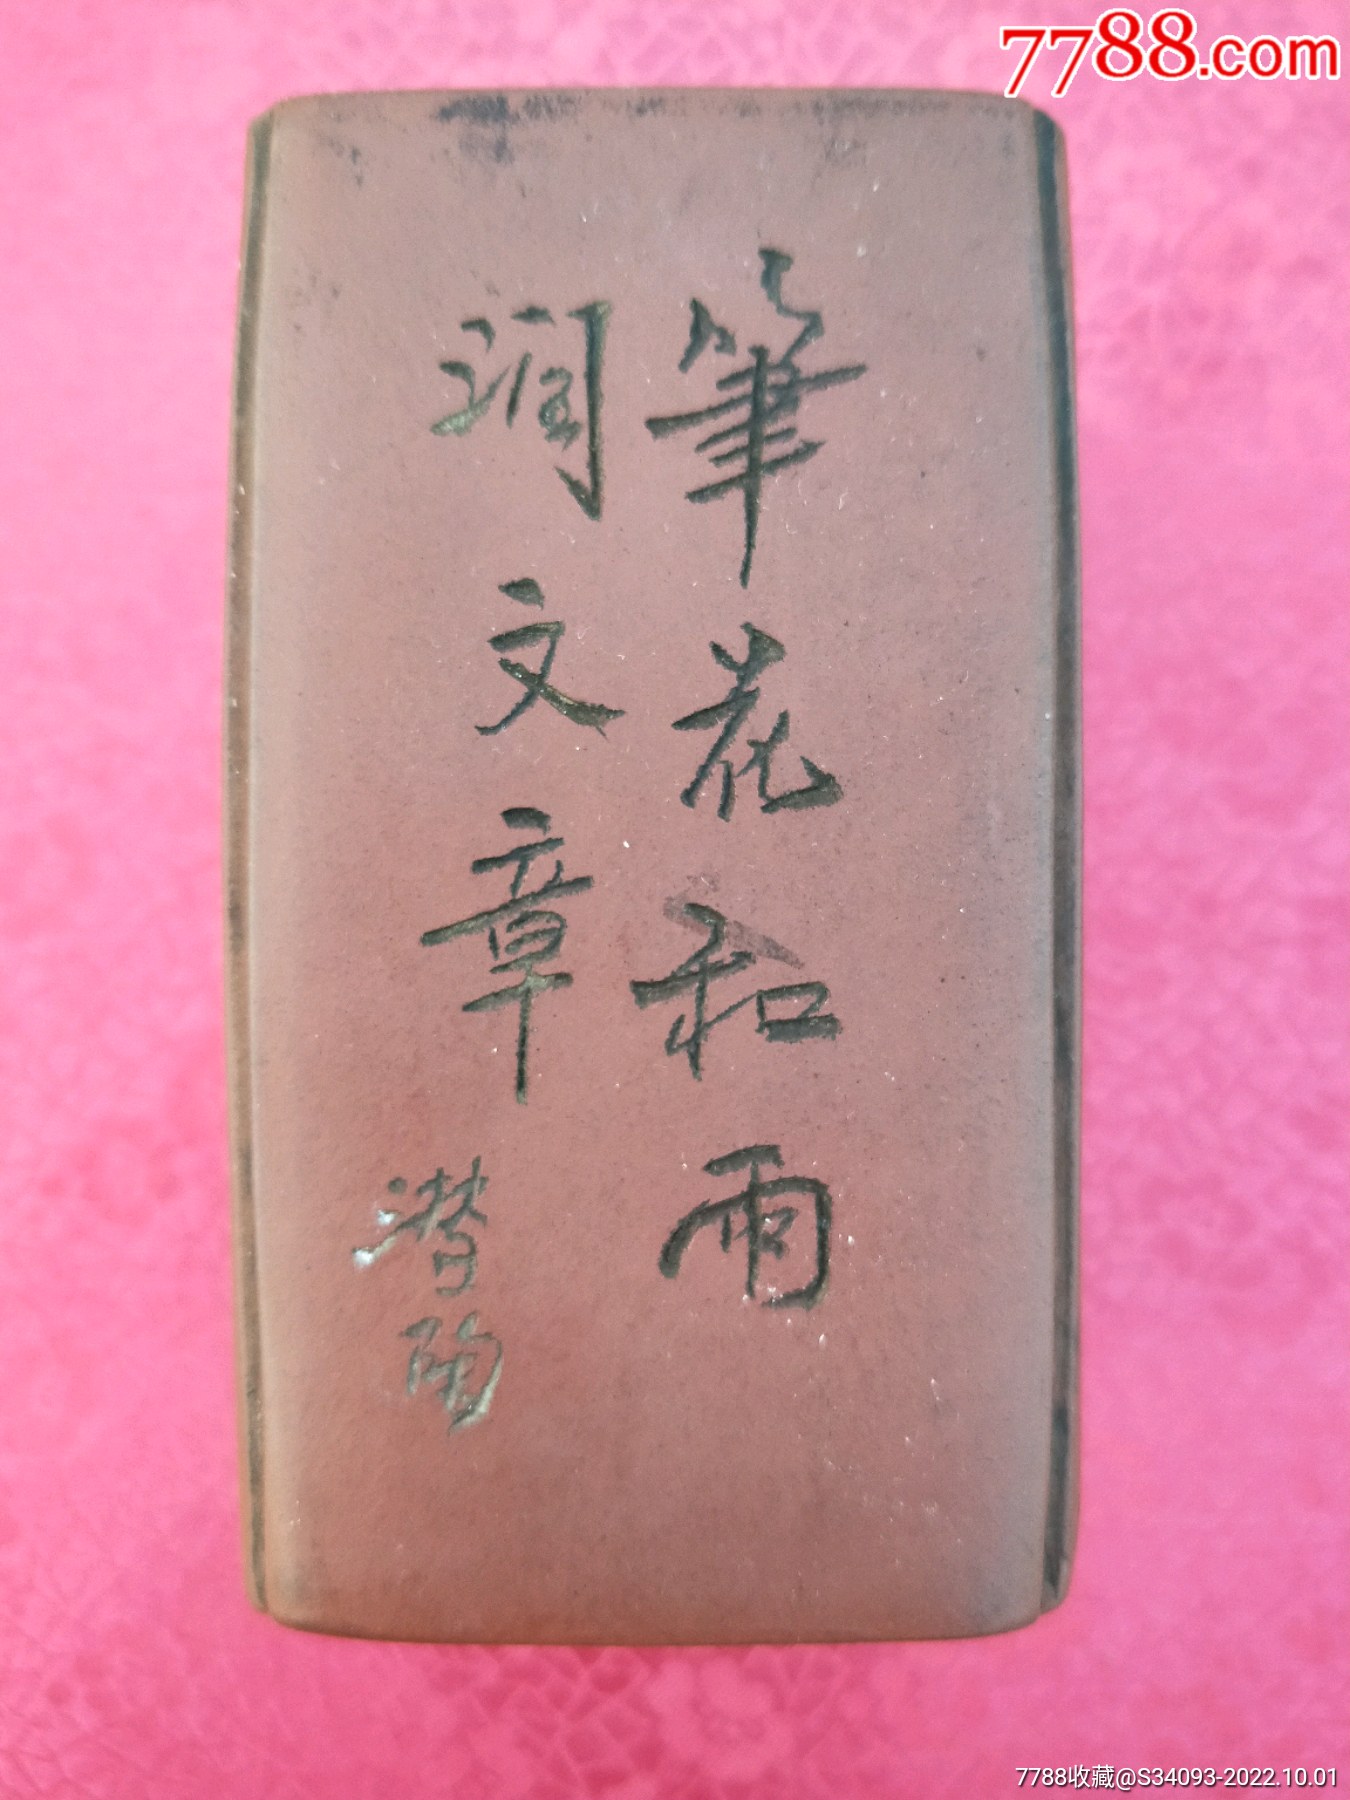 7788.com
筆花和雨
润文章
潜陶
7788收藏@S34093-2022.10.01